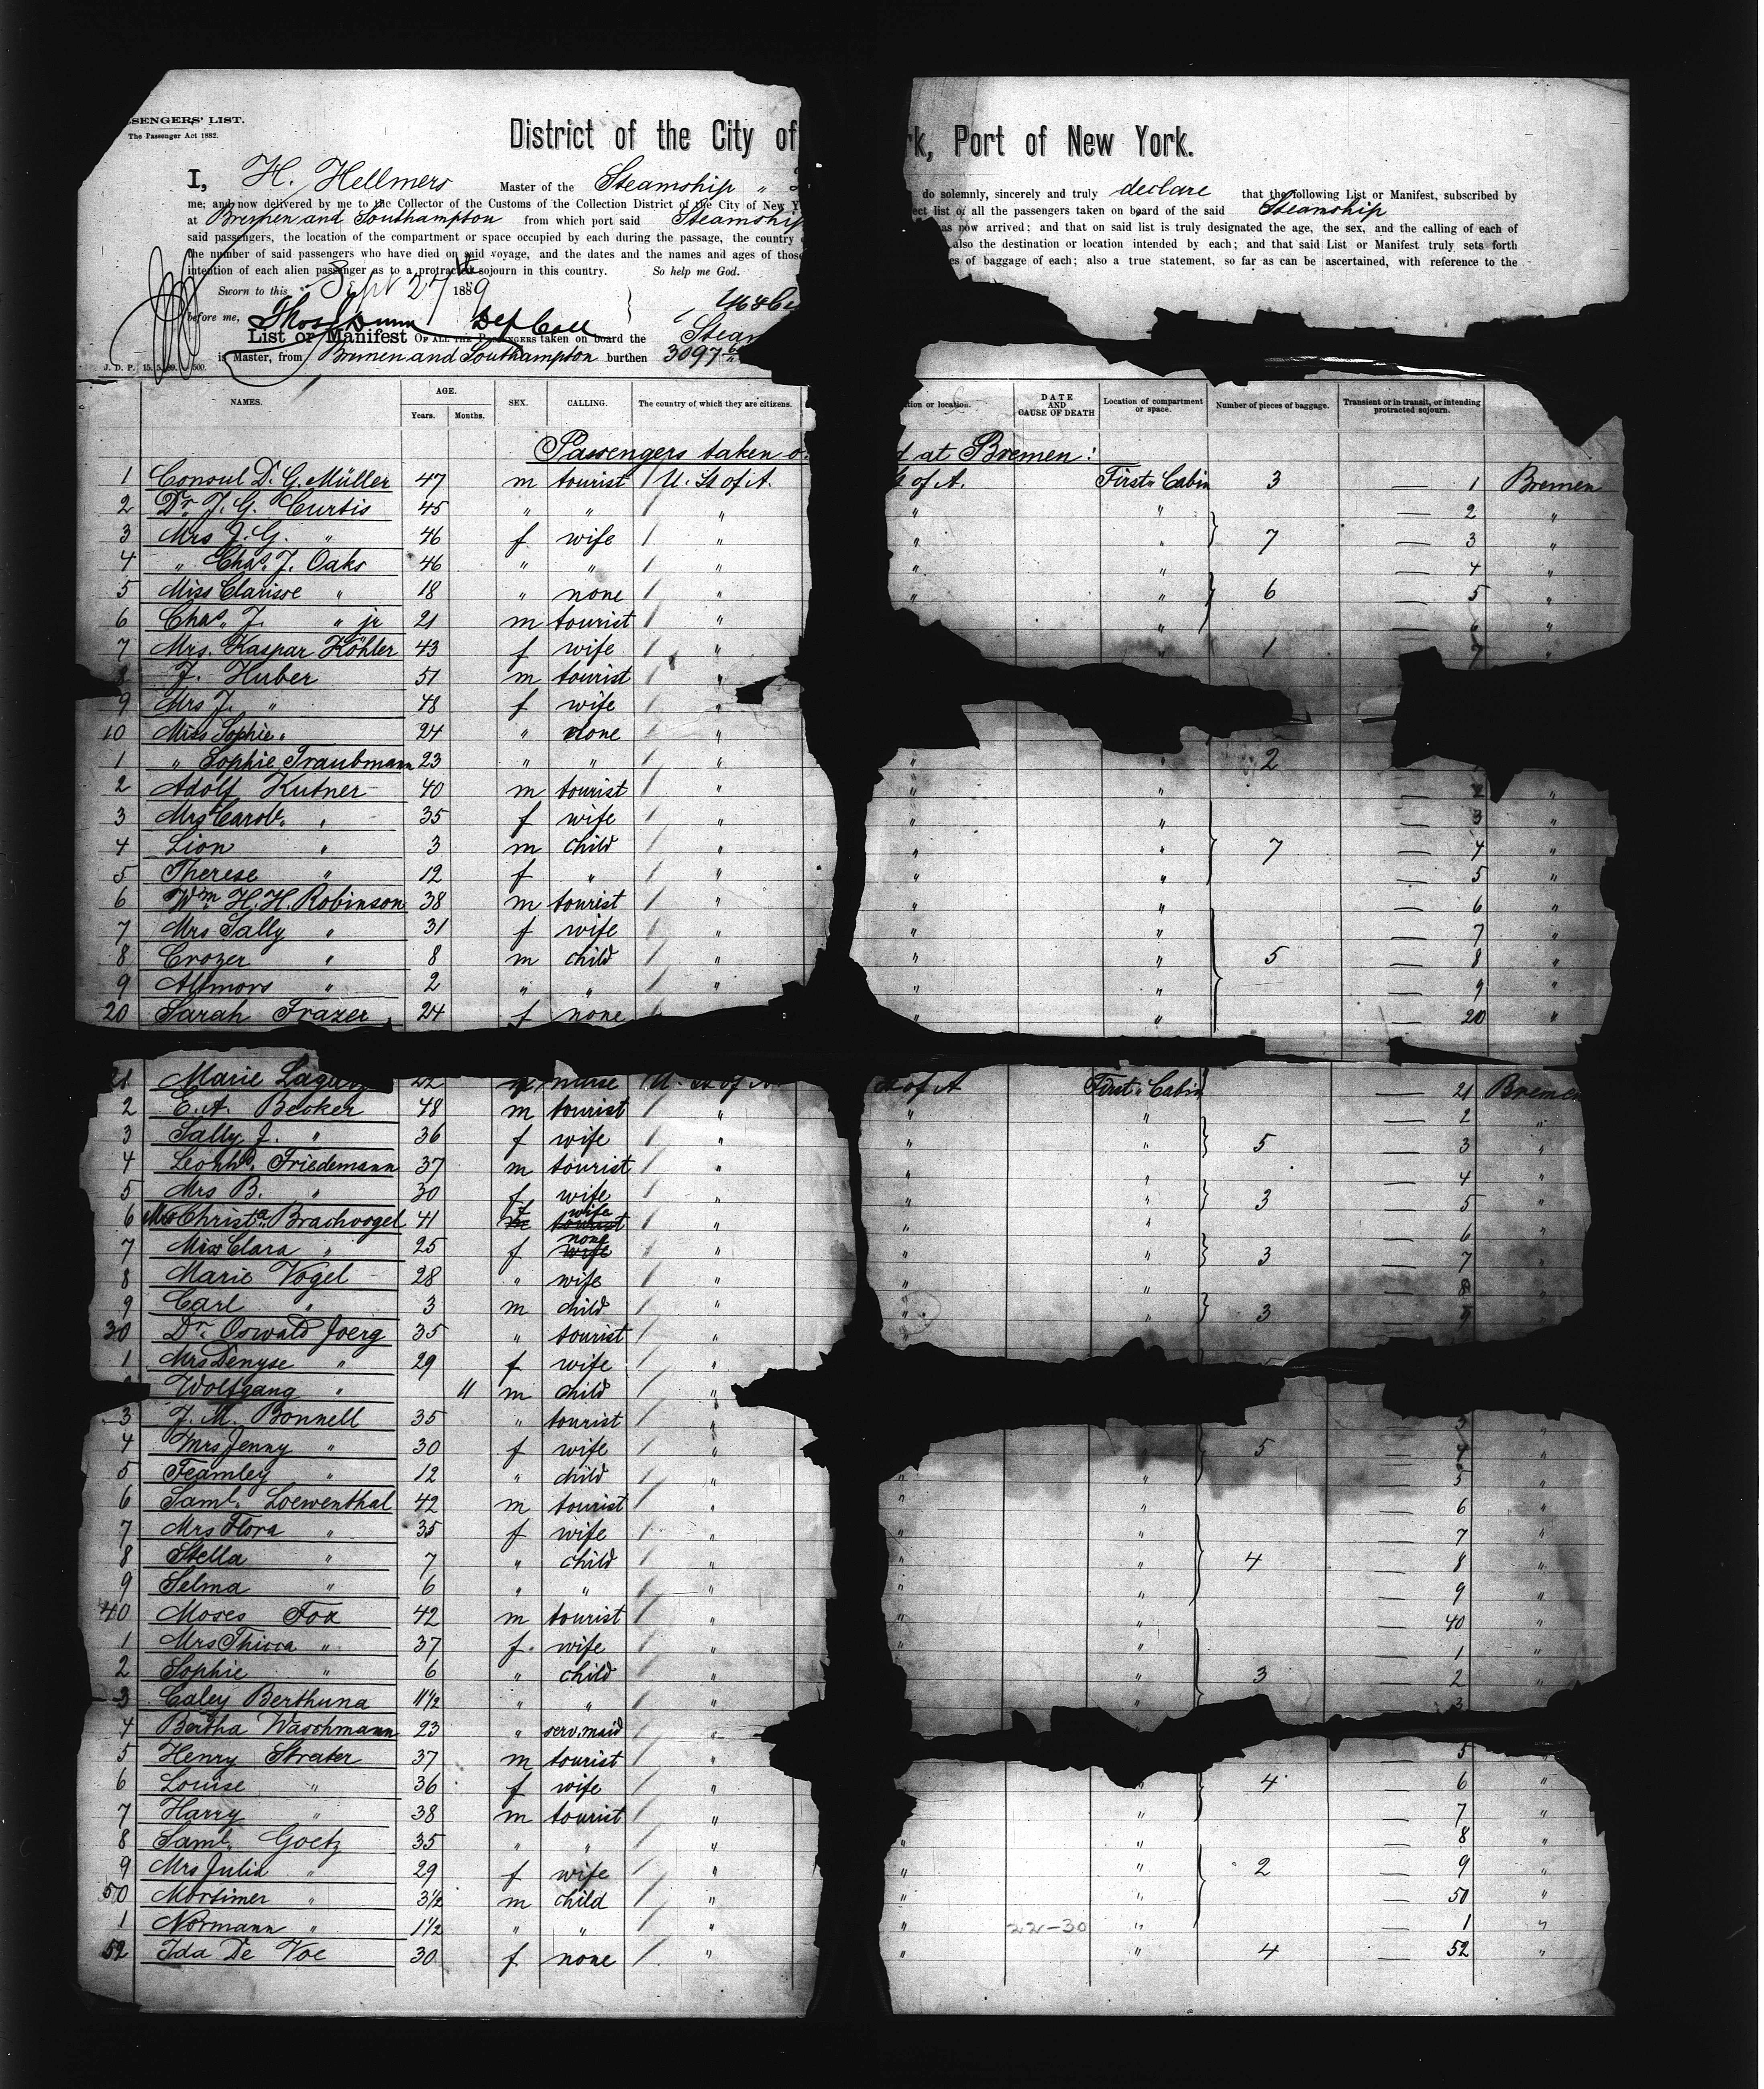 SENGERS' LIST.
The Passenger Act 1882.
District of the City of rk, Port of New York.
I, H. Hellmers Master of the Steamship " do solemnly, sincerely and truly declare that the following List or Manifest, subscribed by
me; and now delivered by me to the Collector of the Customs of the Collection District of the City of New Y ect list of all the passengers taken on board of the said Steamship
at Bremen and Southampton from which port said Steamship as now arrived; and that on said list is truly designated the age, the sex, and the calling of each of
said passengers, the location of the compartment or space occupied by each during the passage, the country also the destination or location intended by each; and that said List or Manifest truly sets forth
the number of said passengers who have died on said voyage, and the dates and the names and ages of those es of baggage of each; also a true statement, so far as can be ascertained, with reference to the
intention of each alien passenger as to a protracted sojourn in this country. So help me God.
Sworn to this Sept 27th 1889
before me, Thos Dunn Dep Coll
List or Manifest OF ALL THE PASSENGERS taken on board the Steam
is Master, from Bremen and Southampton burthen 3097
J. D. P. 15. 5. 89. 500.
NAMES. AGE. Years. Months. SEX. CALLING. The country of which they are citizens. tion or location. DATE AND CAUSE OF DEATH Location of compartment or space. Number of pieces of baggage. Transient or in transit, or intending protracted sojourn.
Passengers taken o d at Bremen:
1 Consul D. G. Müller 47 m tourist / U. St of A. of A. First Cabin 3 — 1 Bremen
2 Dr. J. G. Curtis 45 " " " " " — 2 "
3 Mrs J. G. " 46 f wife / " " " 7 — 3 "
4 " Chas. J. Oaks 46 " " / " " " — 4 "
5 Miss Clarisse " 18 " none / " " " 6 — 5 "
6 Chas. J. " jr 21 m tourist / " " — "
7 Mrs. Kaspar Köhler 43 f wife / " 1 7 "
J. Huber 51 m tourist / "
9 Mrs J. " 48 f wife / "
10 Miss Sophie " 24 " none / "
1 " Sophie Traubmann 23 " " / " " " 2
2 Adolf Kutner 40 m tourist / " " " — 2 "
3 Mrs Carole " 35 f wife / " " " — 3 "
4 Lion " 3 m child / " " " 7 — 4 "
5 Therese " 12 f " / " " " — 5 "
6 Wm H. H. Robinson 38 m tourist / " " " — 6 "
7 Mrs Sally " 31 f wife / " " " — 7 "
8 Crozer " 8 m child / " " " 5 — 8 "
9 " 2 " " / " " " — 9 "
20 Sarah Frazer 24 f none / " " — 20 "
21 Marie 22 nurse / U. St of A St of A First Cabin — 21 Breme
2 C. A. Becker 48 m tourist / " " " — 2 "
3 Sally J. " 36 f wife / " " " 5 — 3 "
4 Leonhd. Friedemann 37 m tourist / " " " — 4 "
5 Mrs B. " 30 f wife / " " " 3 — 5 "
6 Mrs Christa. Brachvogel 41 f wife tourist / " " " — 6 "
7 Miss Clara " 25 f none wife / " " " 3 — 7 "
8 Marie Vogel 28 " wife / " " — 8 "
9 Carl " 3 m child / " " " 3 — 9 "
30 Dr. Oswald Joerg 35 " tourist / " "
1 Mrs Denyse " 29 f wife / "
Wolfgang " 11 m child / "
3 J. M. Bonnell 35 " tourist / " — 3 "
4 Mrs Jenny " 30 f wife / " " 5 — 4 "
5 Feamley " 12 " child / " " " — 5 "
6 Saml. Loewenthal 42 m tourist / " " " — 6 "
7 Mrs Flora " 35 f wife / " " " — 7 "
8 Stella " 7 " child / " " " 4 — 8 "
9 Selma " 6 " " / " " " — 9 "
40 Moses Fox 42 m tourist / " " " — 40 "
1 Mrs " 37 f wife / " " " — 1 "
2 Sophie " 6 " child / " " " 3 — 2 "
3 Caley Berthuna 11½ " " / " " " 3
4 Bertha Waschmann 23 " serv. maid / "
5 Henry Strater 37 m tourist / " — 5 "
6 Louise " 36 f wife / " " 4 — 6 "
7 Harry " 38 m tourist / " " — 7 "
8 Saml. Goetz 35 " " / " " " — 8 "
9 Mrs Julia " 29 f wife / " " " 2 — 9 "
50 Mortimer " 3½ m child / " " " — 50 "
1 Normann " 1½ " " / " " 22-30 " — 1 "
52 Ida De Voe 30 f none / " " " 4 — 52 "